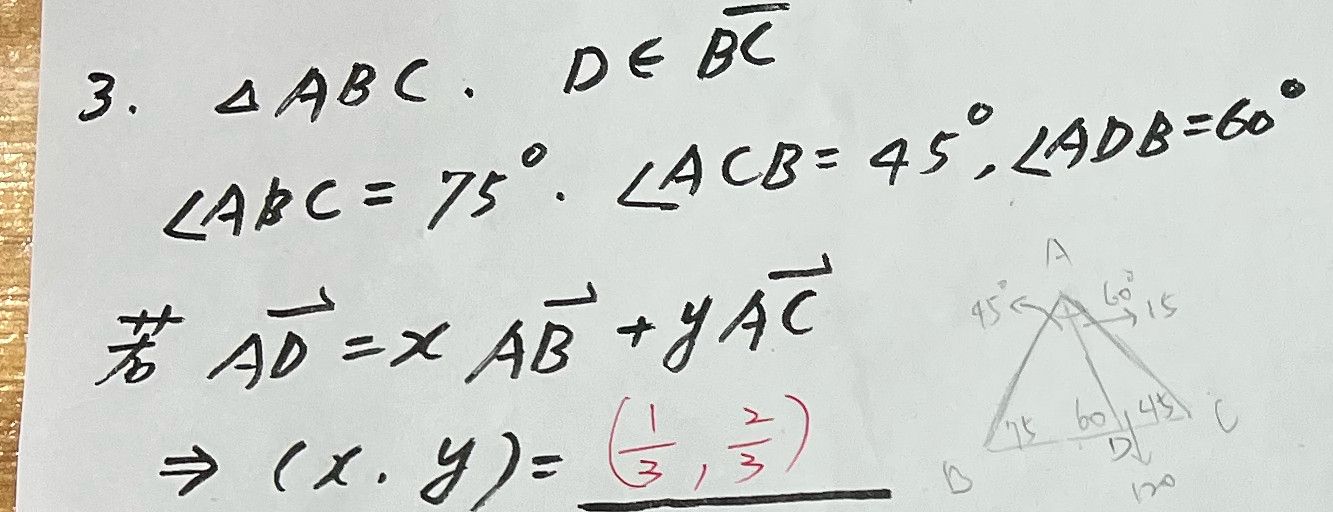 3. △ABC. D∈ \overline{BC}
∠ABC = 75°. ∠ACB = 45°, ∠ADB = 60°
若 \overrightarrow{AD} = x \overrightarrow{AB} + y \overrightarrow{AC}
⇒ (x. y) = (\frac{1}{3}, \frac{2}{3})
A
45° 60° 15
75 60 45
B D C
120